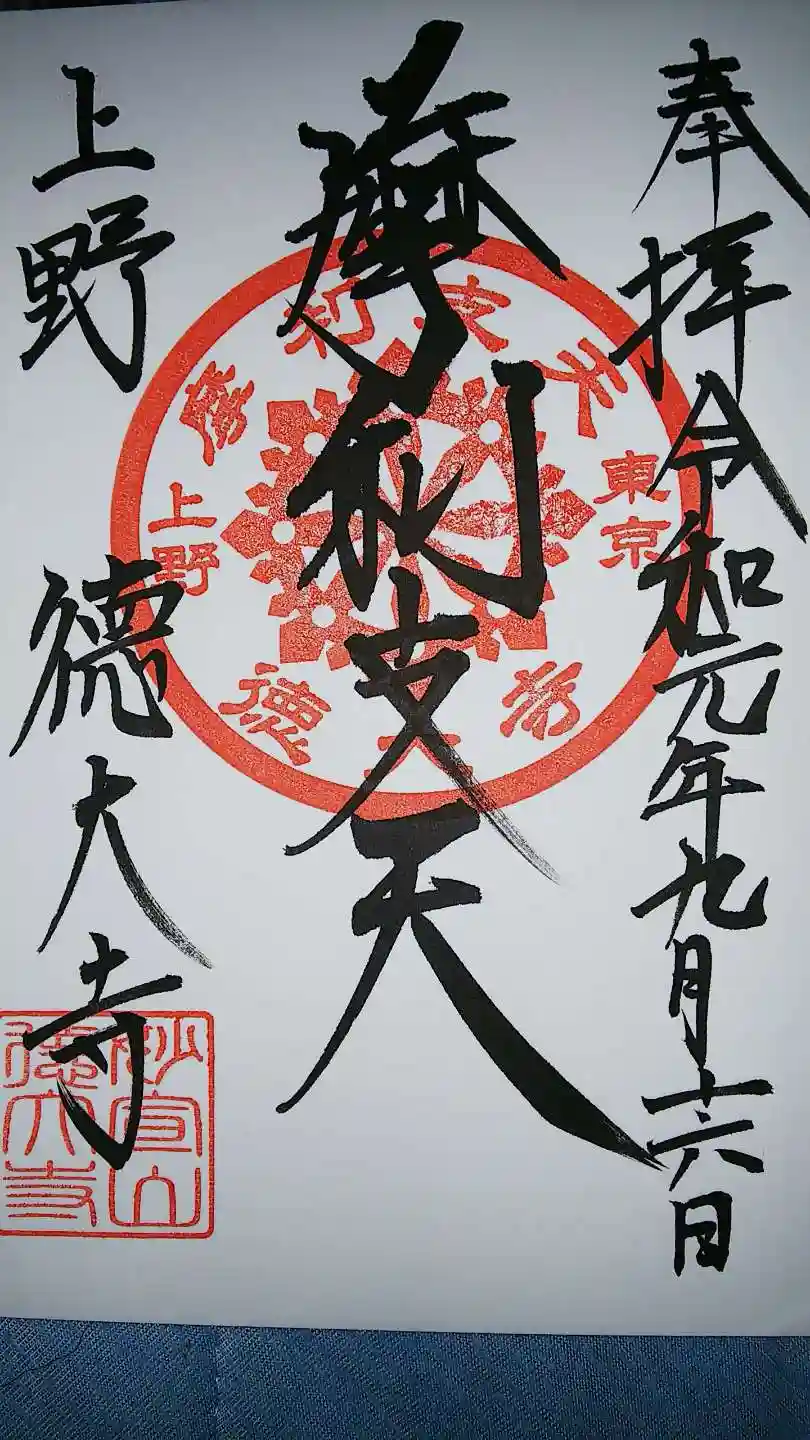 奉拝令和元年九月十六日
摩利支天
上野 徳大寺
摩利支天
東京
上野
徳大寺
妙宣山
徳大寺